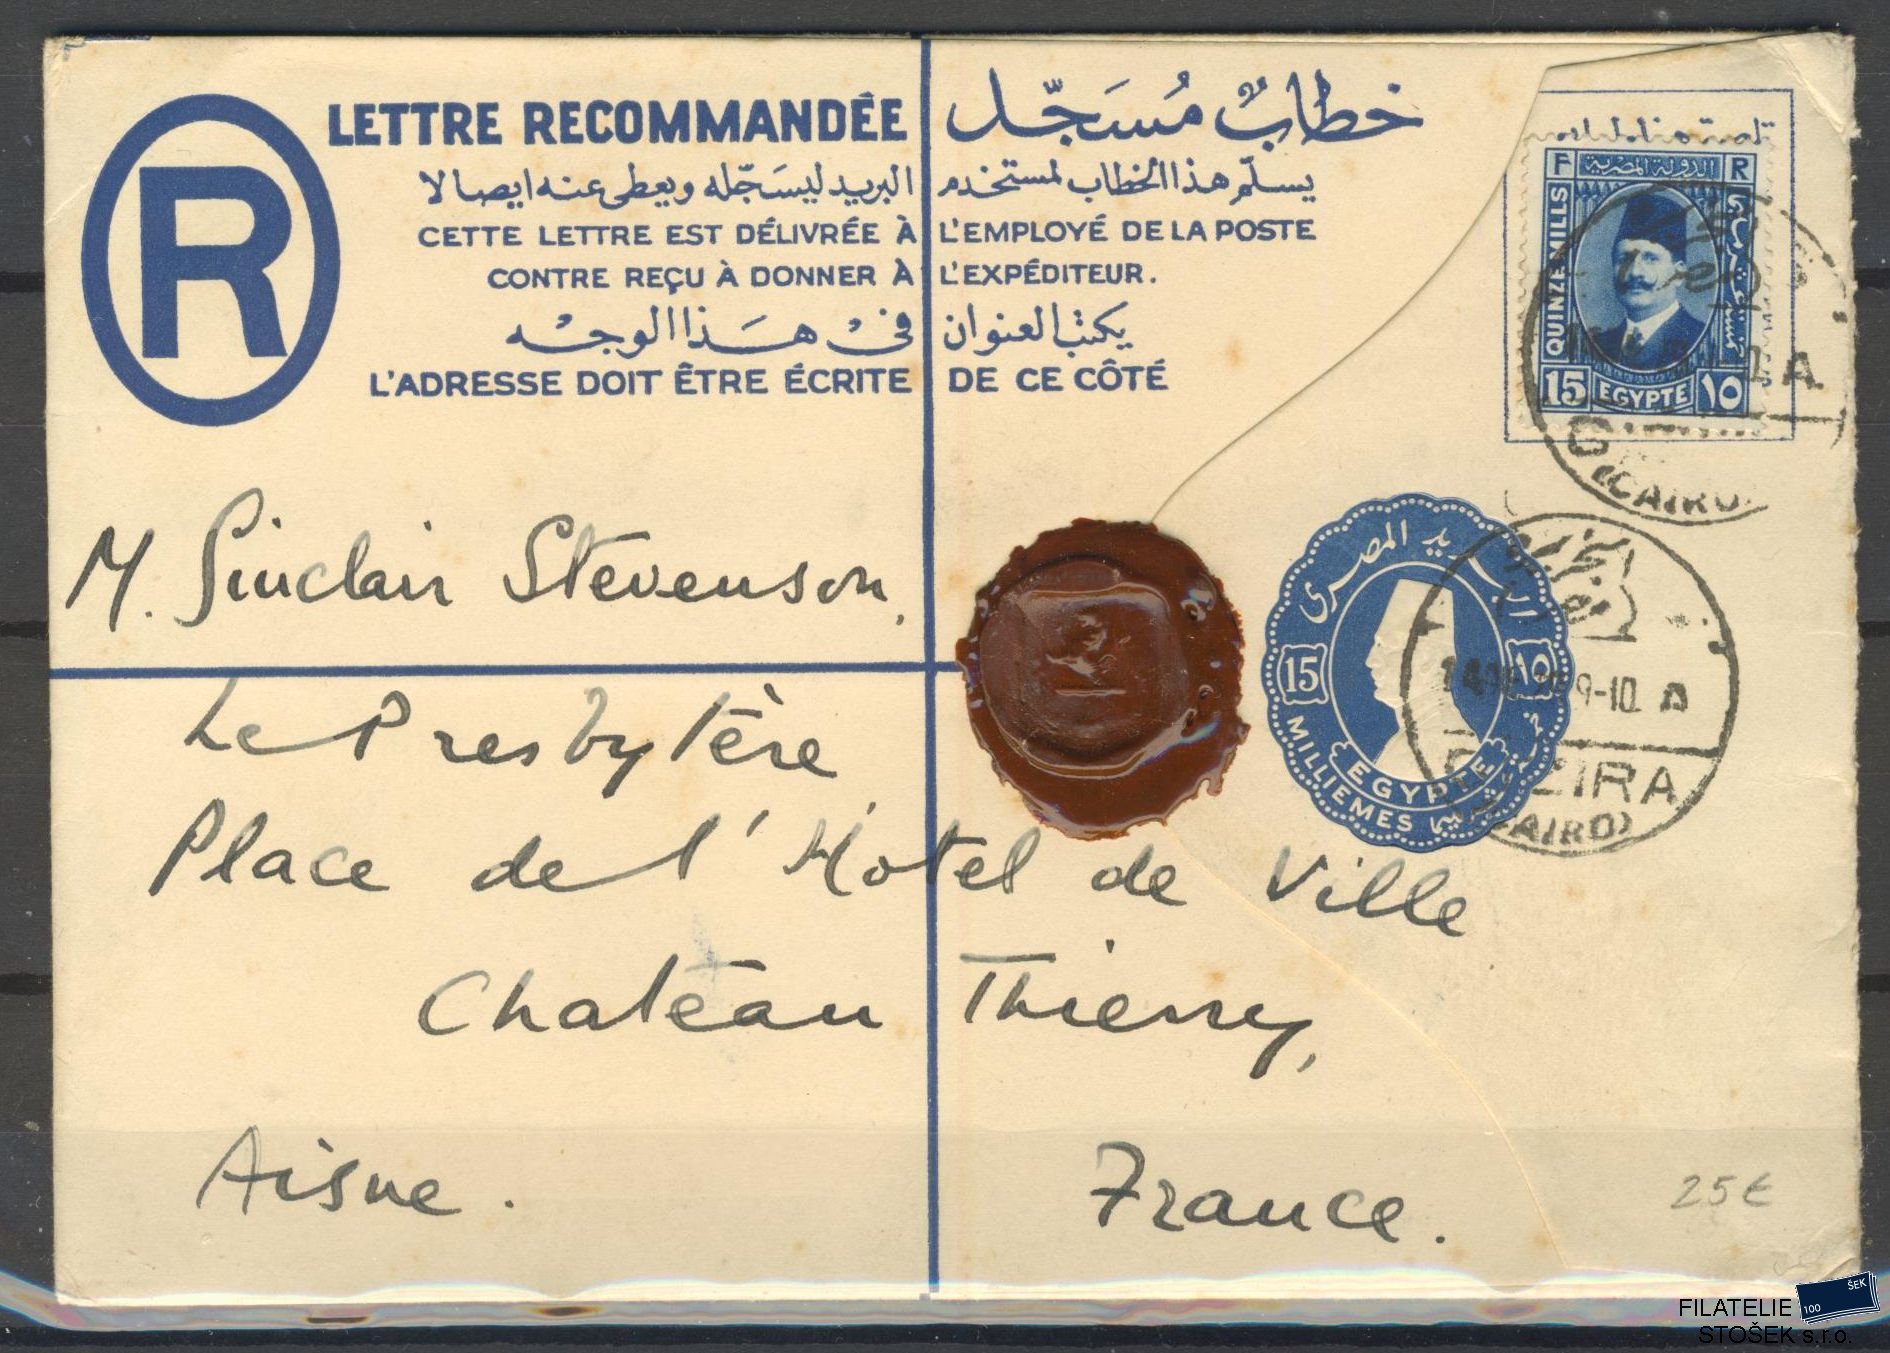 R
LETTRE RECOMMANDÉE خطابٌ مُسَجّل
يسلّم هذا الخطاب لمستخدم البريد ليسَجّله ويعطى عنه ايصالا
CETTE LETTRE EST DÉLIVRÉE À L'EMPLOYÉ DE LA POSTE
CONTRE REÇU À DONNER À L'EXPÉDITEUR.
يكتب العنوان فى هذا الوجه
L'ADRESSE DOIT ÊTRE ÉCRITE DE CE CÔTÉ
F الدولة المصرية R
QUINZE MILLS
15 EGYPTE ١٥
A
(CAIRO)
M. Sinclair Stevenson,
البريد المصرى
15 ١٥
MILLIEMES
EGYPTE
الجزيرة
9-10 A
GEZIRA
(CAIRO)
Le Presbytère
Place de l'Hôtel de Ville
Château Thierry,
Aisne. France.
25€
FILATELIE
STOŠEK s.r.o.
ŠEK
100